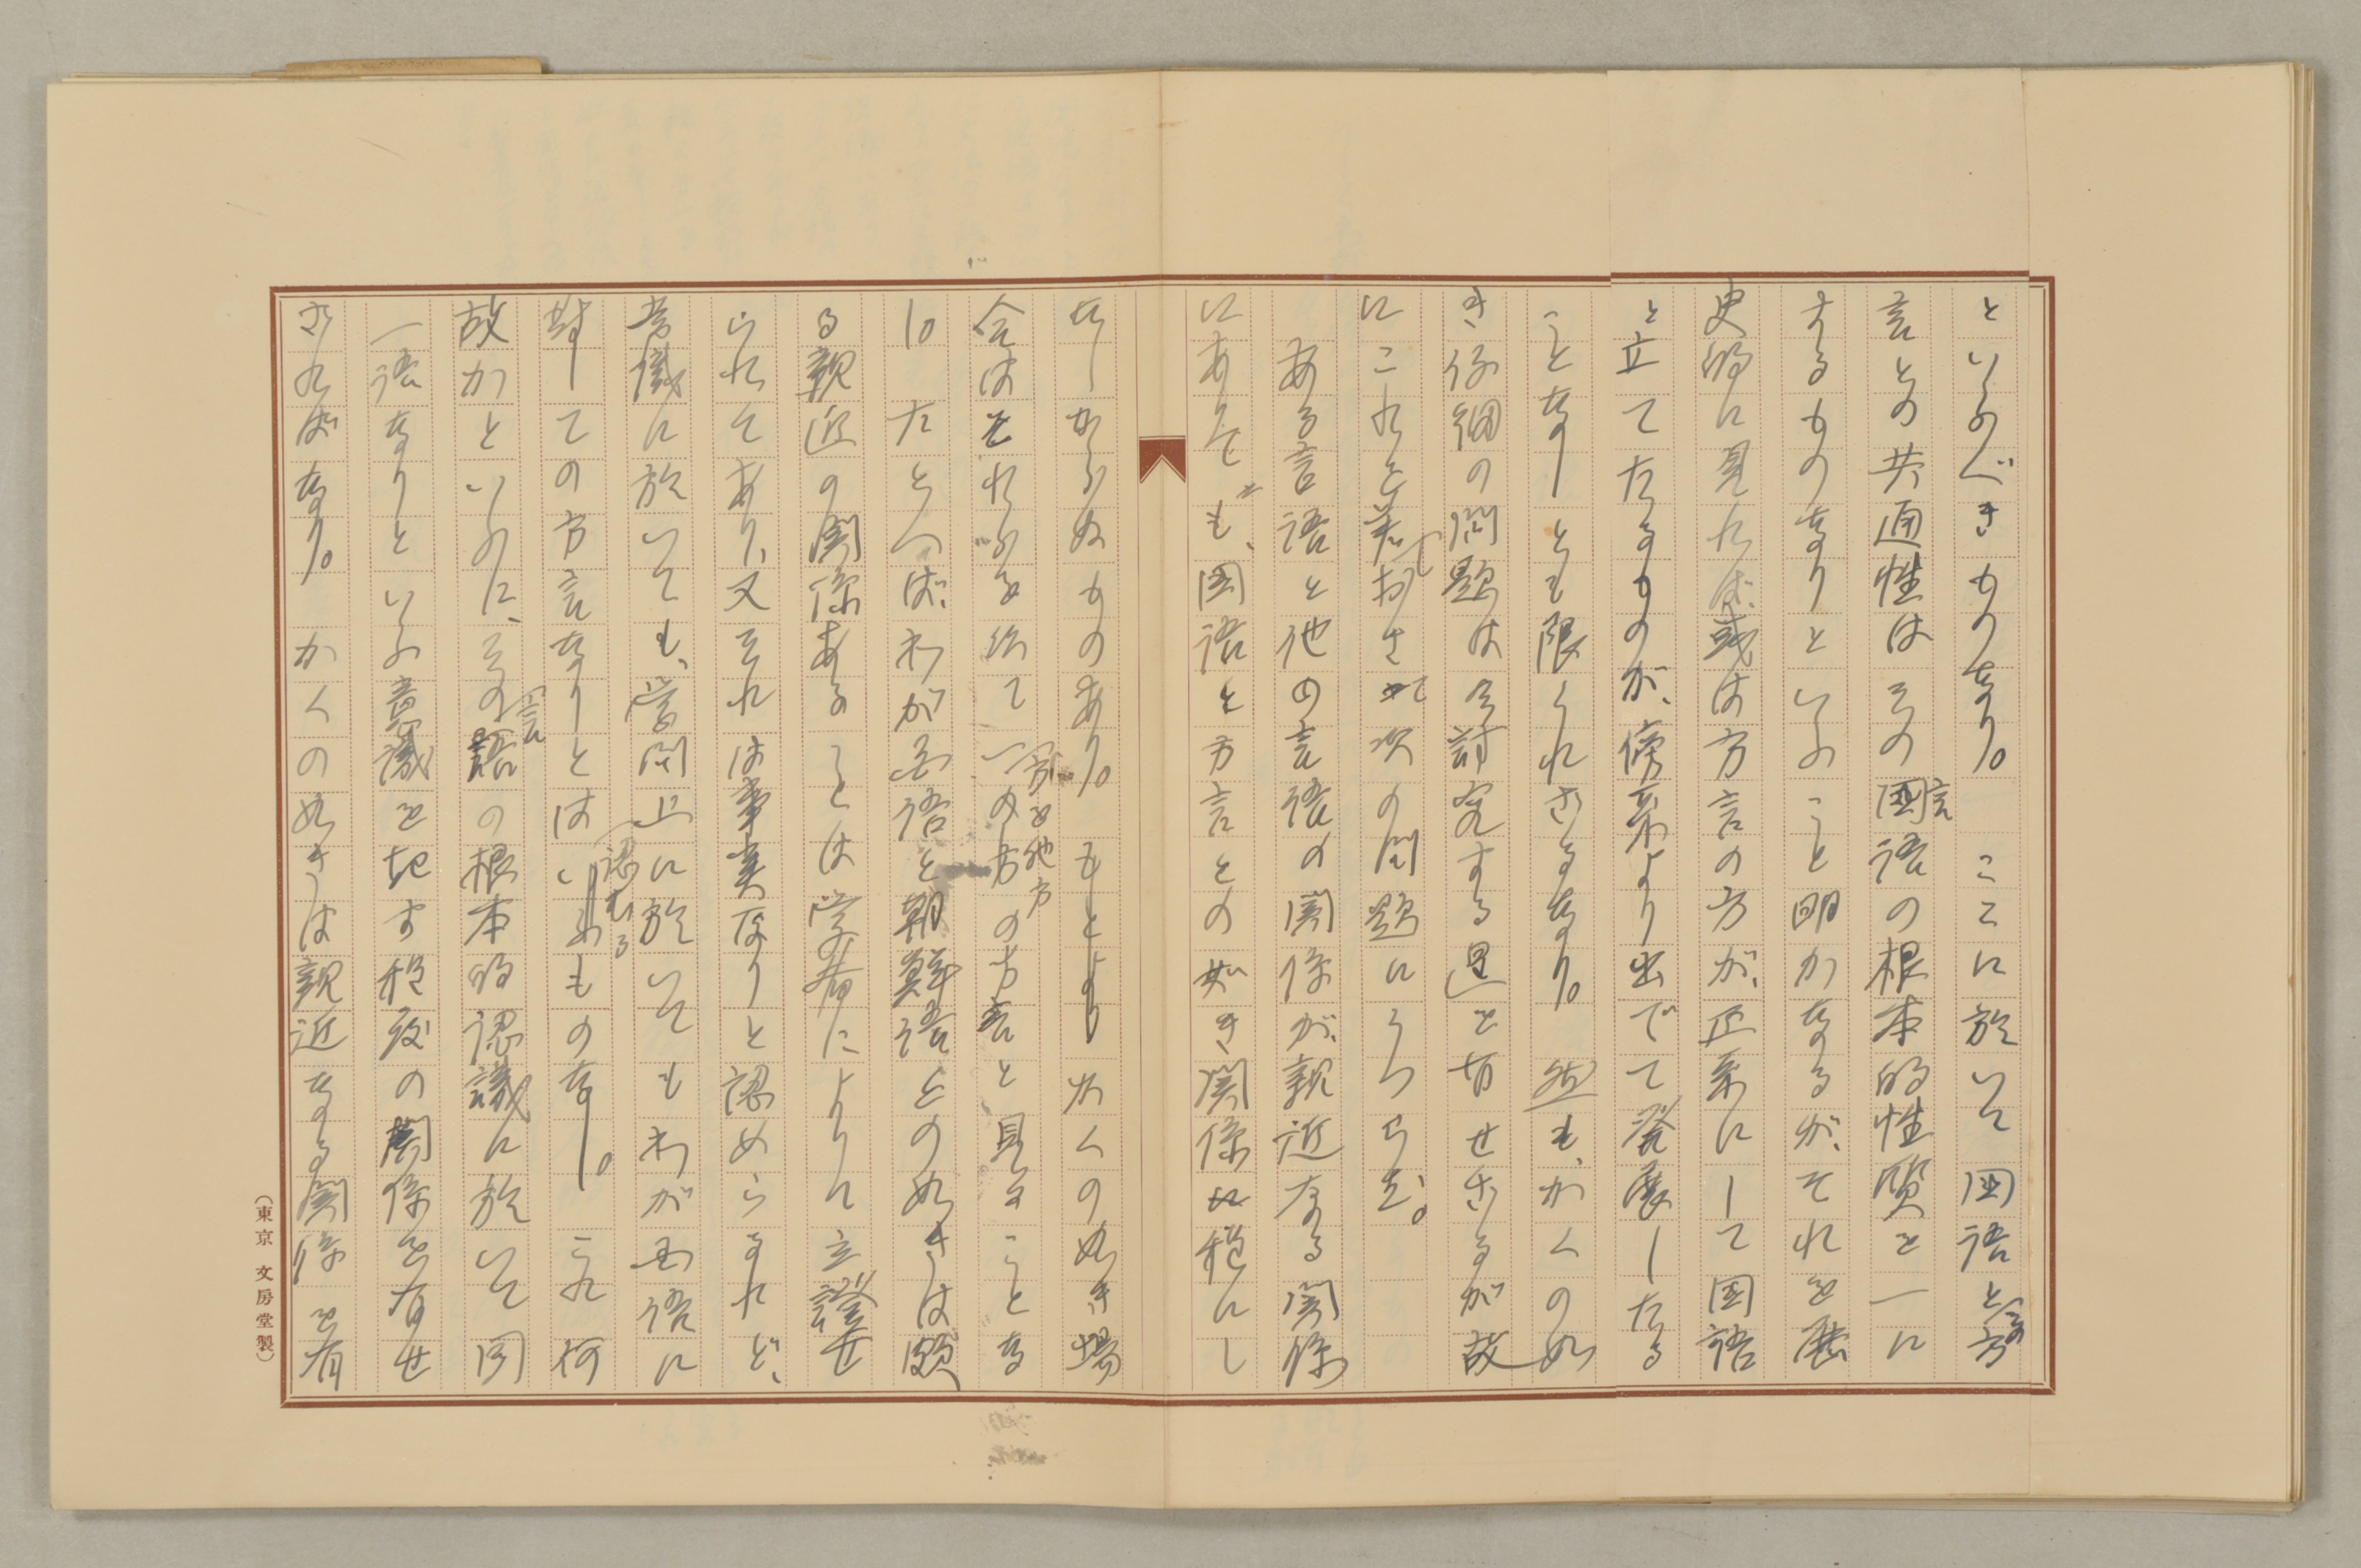 といふべきものなり。　ここに於いて国語と その方
言との共通性はその言語の根本的性質を一に
するものなりといふこと明かなるが、それを歴
史的に見れば、或は方言の方が、正系にして国語
と立てたるものが、傍系より出でて発展したる
ことなしとも限られざるなり。　然も、かくの如
き仔細の問題は今討究する遑を有せざるが故
にこれを差しおきて次の問題にうつらむ。
　ある言語と他の言語の関係が、親近なる関係
にありとも、国語と方言との如き関係程にし
たしからぬものあり。　もとよりかくの如き場
合はそれらを以て一方を他方の方言と見ることな
し。　たとへば、わが国語と朝鮮語との如きは頗
る親近の関係あることは学者によりて立證せ
られてあり、又それは事実なりと認めらるれど、
意識に於いても、学問上に於いてもわが国語に
対しての方言なりとは認むるものなし。　これ何
故かといふに、その言語の根本的認識に於いて同
一語なりといふ意識を起す程度の関係を有せ
ざればなり。　かくの如きは親近なる関係を有
（東京　文房堂製）